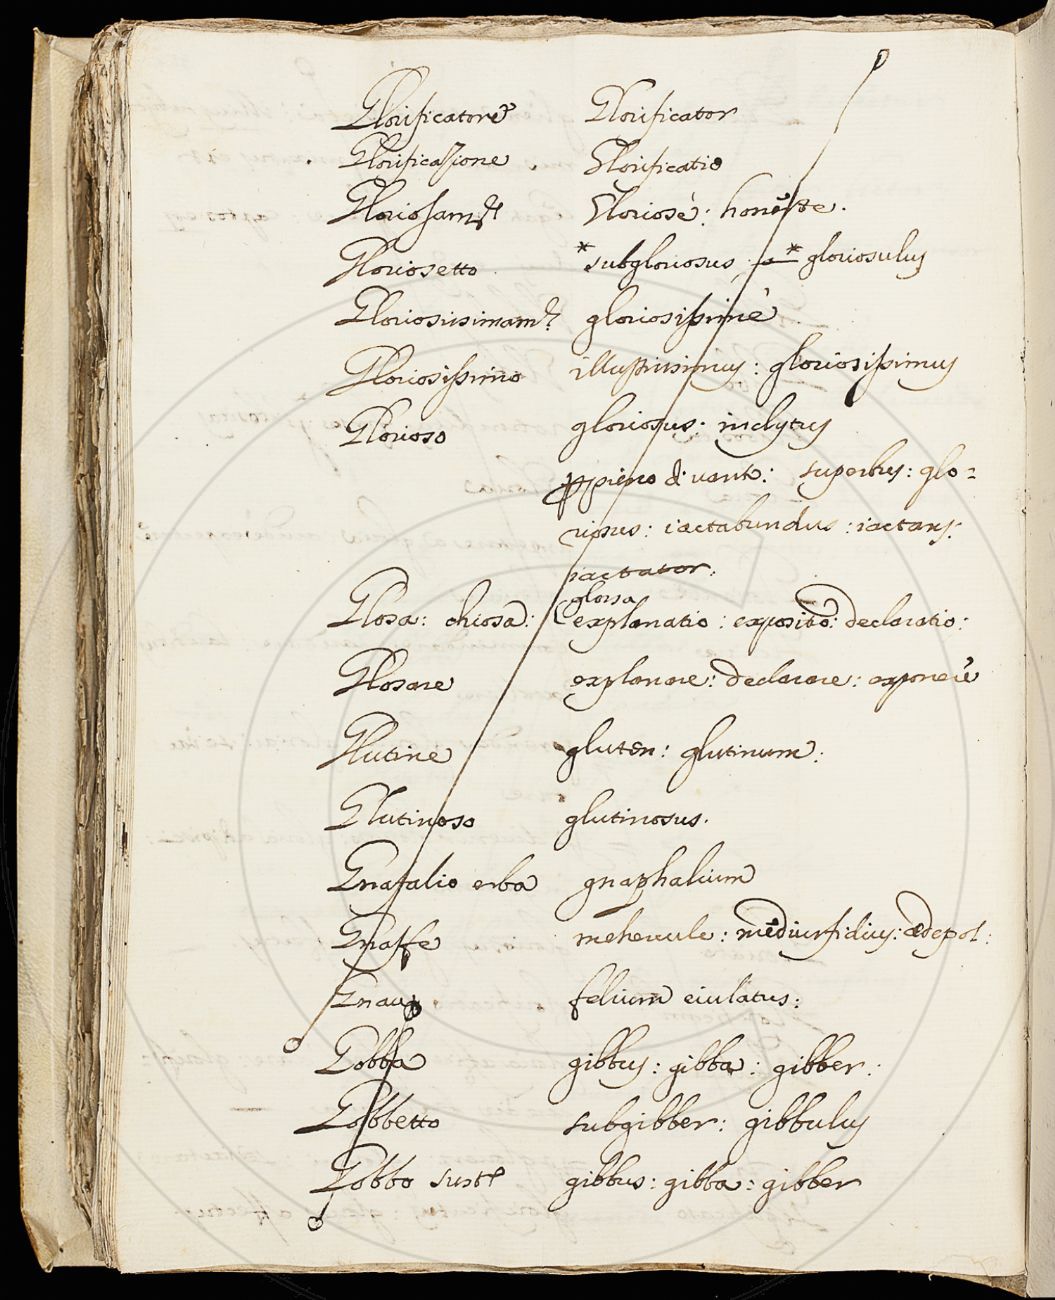 Glorificatore Glorificator
Glorificazione Glorificatio
Gloriosam.te Gloriosè: honestè.
Gloriosetto *subgloriosus, * gloriosulus
Gloriosissimam.te gloriosissimè
Gloriosissimo illustrissimus: gloriosissimus
Glorioso gloriosus. inclytus
p pieno di vanto: superbus: glo=
riosus: iactabundus: iactans:
iactator.
glossa
Glosa: chiosa: explanatio: expositio: declaratio:
Glosare explanare: declarare: exponere
Glutine gluten: glutinum:
Glutinoso glutinosus.
Gnafalio erba gnaphalium
Gnaffe mehercule: mediusfidius: ædepol:
Gnau felium eiulatus:
Gobba gibbus: gibba: gibber:
Gobbetto subgibber: gibbulus
Gobbo sust.e gibbus: gibba: gibber